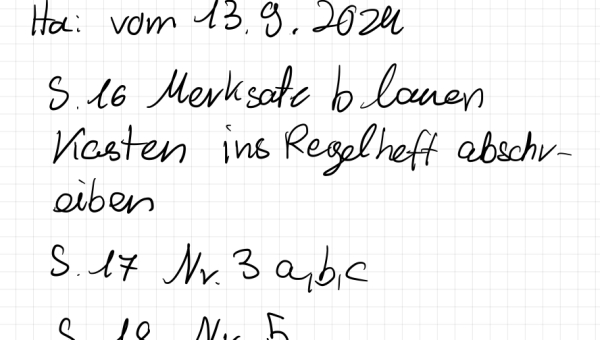 Ha: vom 13.9.2024
S.16 Merksatz blauen
Kasten ins Regelheft abschr-
eiben
S.17 Nr. 3 a,b,c
S. 18 Nr. 5